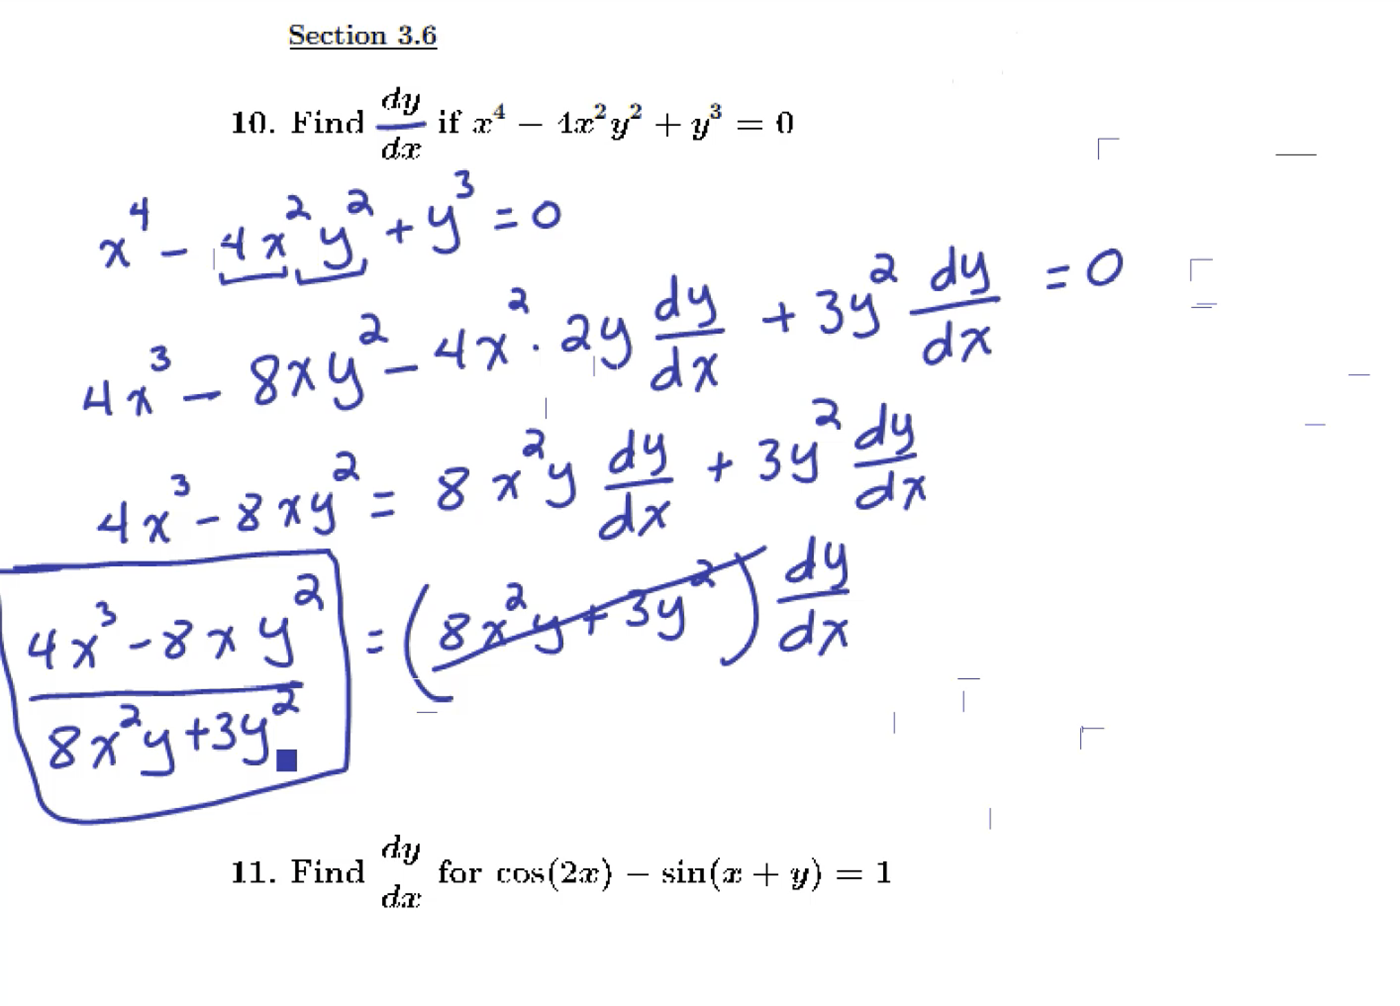 Section 3.6
10. Find dy/dx if x⁴ − 4x²y² + y³ = 0
x⁴ − 4x²y² + y³ = 0
4x³ − 8xy² − 4x² · 2y dy/dx + 3y² dy/dx = 0
4x³ − 8xy² = 8x²y dy/dx + 3y² dy/dx
(4x³ − 8xy²)/(8x²y + 3y²) = (8x²y + 3y²) dy/dx
11. Find dy/dx for cos(2x) − sin(x + y) = 1